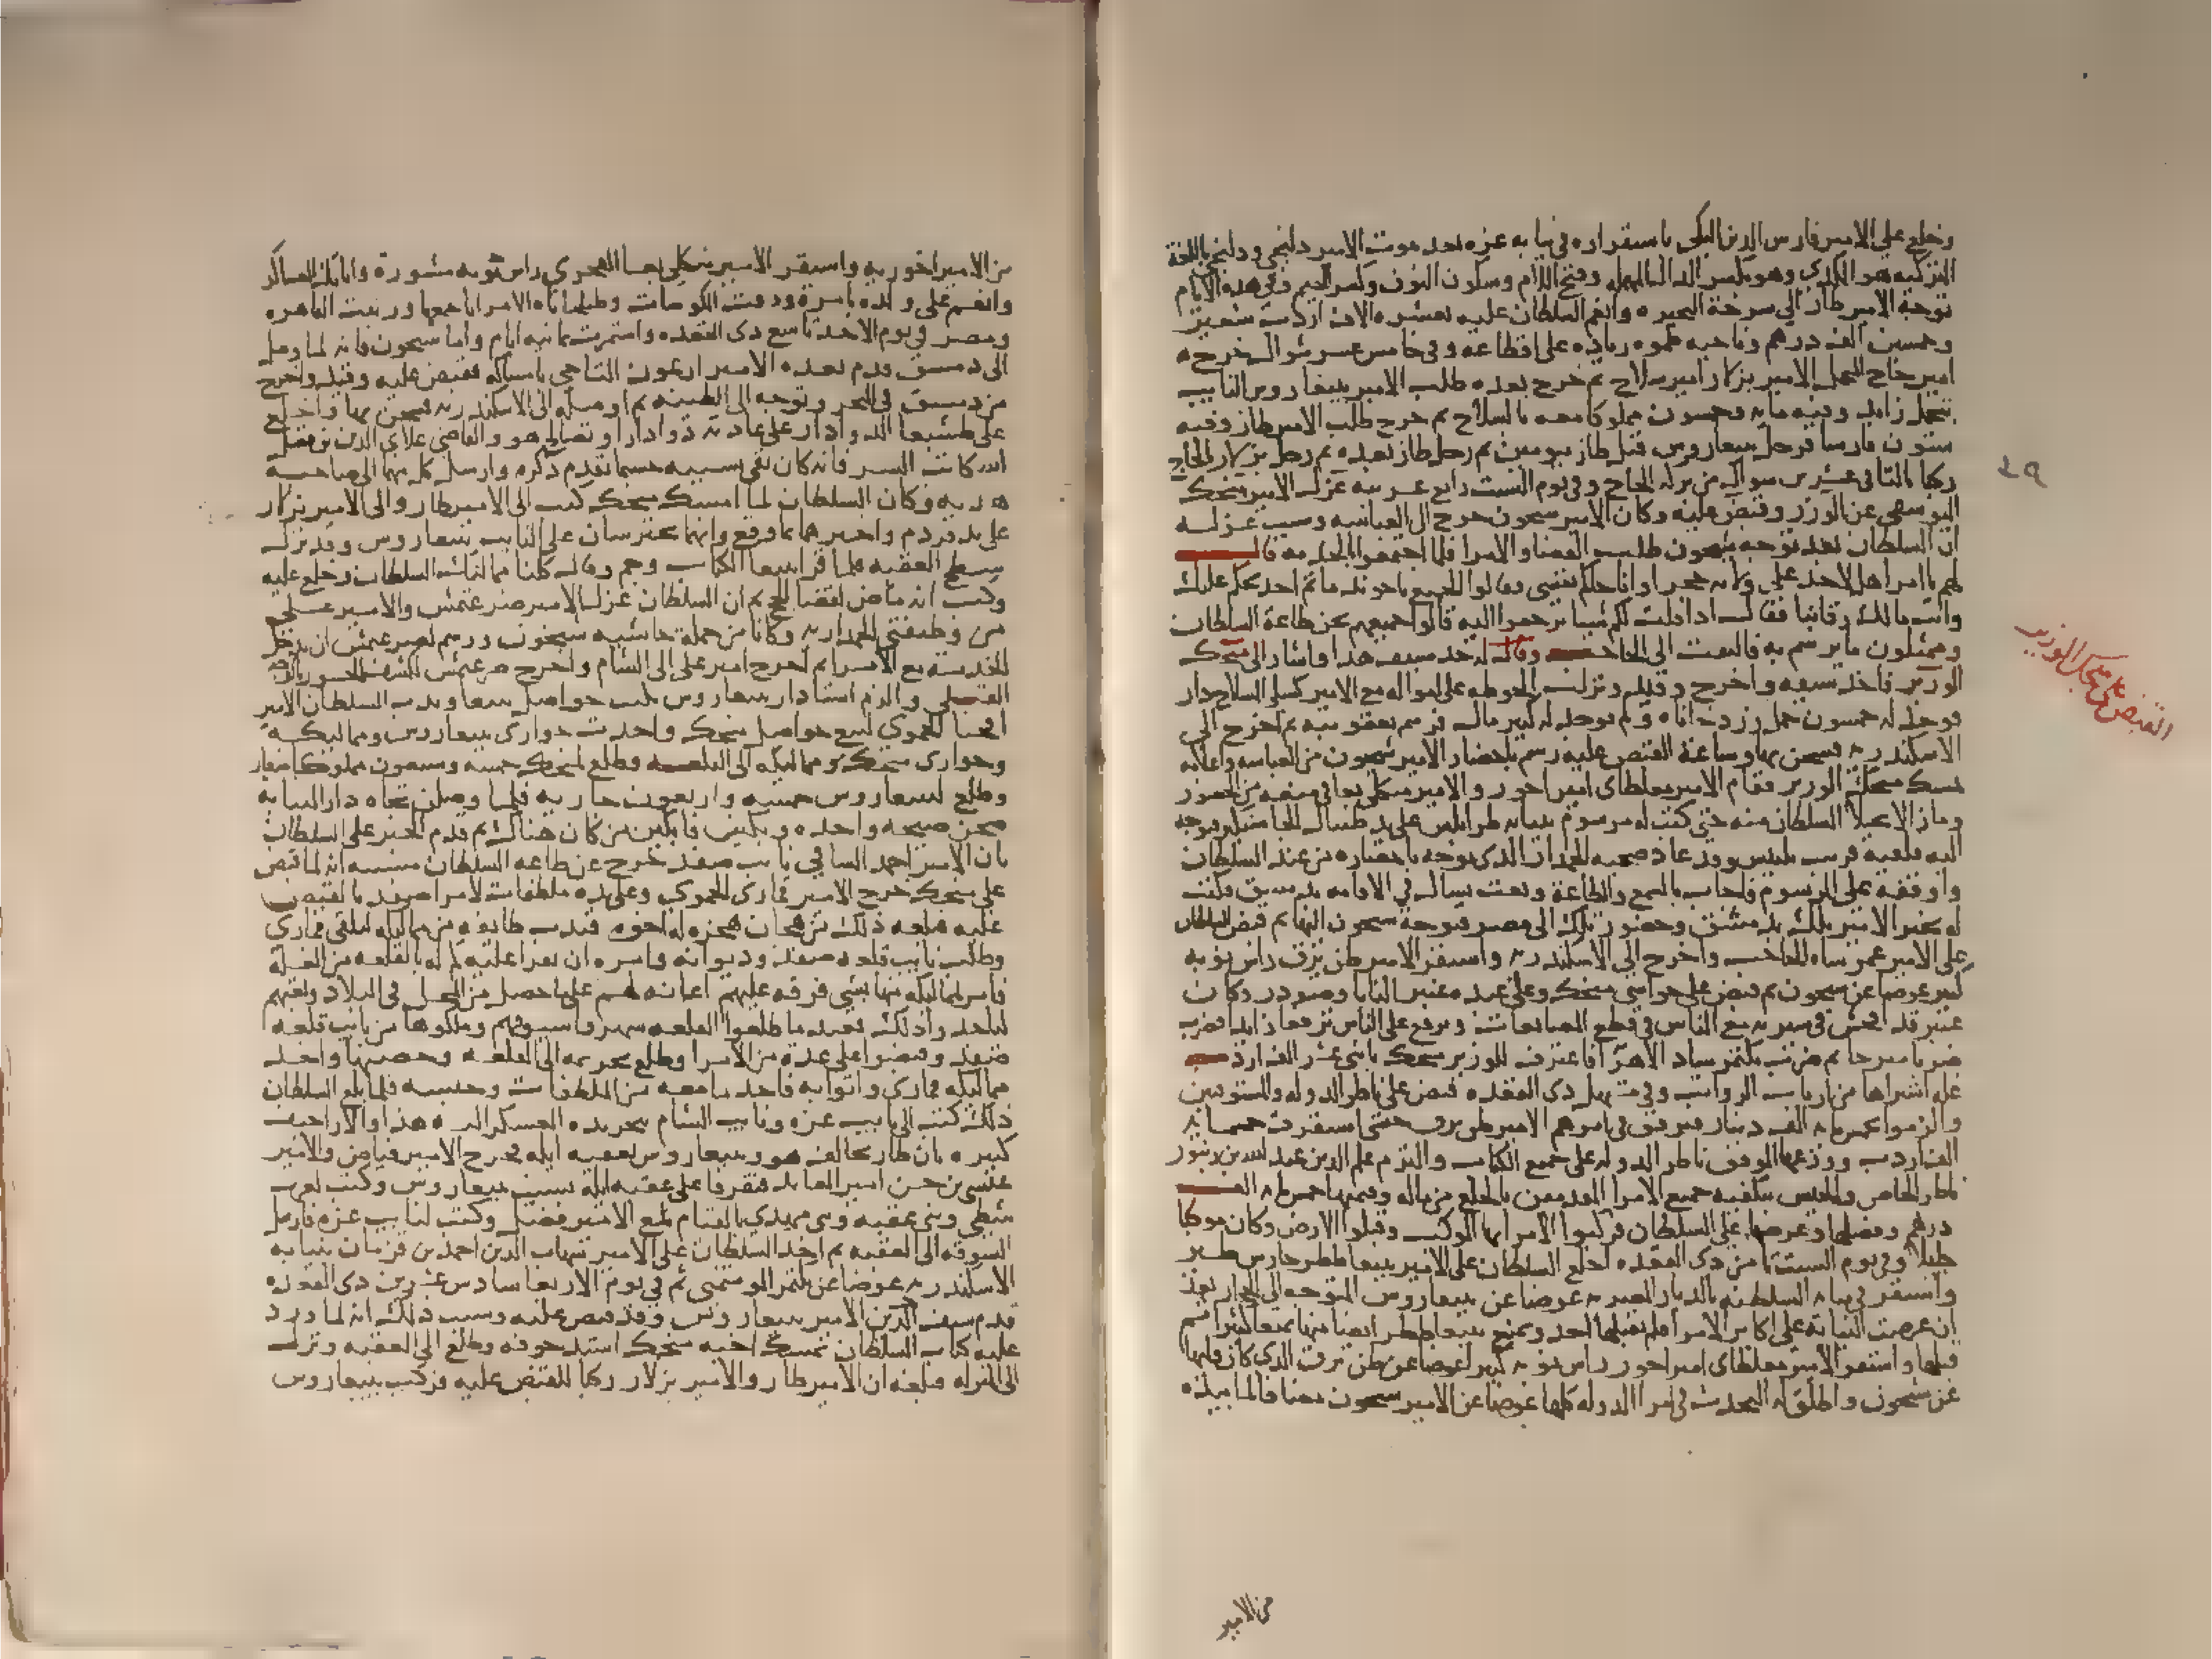 وخلع على الامير فارس الدين البكى باستقراره في نيابه غزه بعد موت الامير دلنجي ودلنجي باللغة
التركيه هو المكدي وهو بكسر الدال المهمله وفتح اللام وسكون النون وكسر الجيم وفي هذه الايام
توجه الامير طاز الى سرحة البحيره وانعم السلطان عليه بعشره الاف اردب شعير
وخمسين الف درهم وناحيه طموه زياده على اقطاعه وفي خامس عشر شوال خرج
امير حاج المحمل الامير بزلار امير سلاح ثم خرج بعده طلب الامير بيبغا روس النايب
بتجمل زايد وفيه مايه وخمسون مملوكا معده بالسلاح ثم خرج طلب الامير طاز وفيه
ستون فارسا فرحل بيبغا روس قبل طاز بيومين ثم رحل طاز بعده ثم رحل بزلار بالحاج
ركبا ثالثا في عشرين شوال من بركه الحاج وفي يوم السبت رابع عشرينه عزل الامير منجك
اليوسفي عن الوزر وقبض عليه وكان الامير شيخون خرج الى العباسيه وسبب عزله
ان السلطان بعد توجه شيخون طلب القضاه والامرا فلما اجتمعوا بالخدمه قال
لهم يا امرا هل لاحد على ولايه حجر او انا حاكم نفسي فقالوا الجميع ياخوند ما ثم احد يحكم عليك
وانت مالك رقابنا فقال اذا قلت لكم شيئا ترجعوا اليه قالوا جميعهم نحن طاعة السلطان
وممتثلون ما يرسم به فالتفت الى الحاجب وقال له خد سيف هذا واشار الى منجك
الوزير فاخد سيفه واخرج وقيد ونزلت الحوطه على امواله مع الامير كشلي السلاح دار
فوجد له خمسون حمل زردخاناه ولم يوجد له كبير مال فرسم بعقوبته ثم اخرج الى
الاسكندريه فسجن بها وساعة القبض عليه رسم باحضار الامير شيخون من العباسه واعلامه
بمسك منجك الوزير فقام الامير مغلطاي امير اخور والامير منكلي بغا في منعه من الحضور
وما زالا يخيلا السلطان منه حتى كتب له مرسوم بنيابه طرابلس على يد طينال الجاشنكير فتوجه
اليه فلقيه قريب بلبيس وقد عاد صحبه الجمدار الذي توجه باحضاره من عند السلطان
واوقفه على المرسوم فاجاب بالسمع والطاعة وبعث يسال في الاقامه بدمشق فكتب
له بخبز الامير تلك بدمشق وحضور تلك الى مصر فتوجه شيخون اليها ثم قبض السلطان
على الامير عمر شاه الحاجب واخرج الى الاسكندريه واستقر الامير طن يرق راس نوبه
كبير عوضا عن شيخون ثم قبض على حواشي منجك وعلى عبده عنبر البابا وصودر وكان
عنبر قد افحش في سيرته مع الناس في قطع المصانعات وترفع على الناس ترفعا زايدا فضرب
ضربا مبرحا ثم ضرب بكتمر شاد الاهرا فاعترف للوزير منجك باثني عشر الف اردب
غله اشتراها من ارباب الرواتب وفي مستهل دي القعده قبض على ناظر الدوله والمستوفين
والزموا بخمسمايه الف دينار فترفق في امرهم الامير طن يرق حتى استقرت خمسمايه
الف اردب ووزعها الموفق ناظر الدوله على جميع الكتاب والتزم علم الدين عبد الله بن زنبور
ناظر الخاص والجيش بتكفيه جميع الامرا المقدمين بالخلع من ماله وقيمتها خمسمايه الف
درهم وفصلها وعرضها على السلطان فركبوا الامرا بها الموكب وقبلوا الارض وكان موكبا
جليلا وفي يوم السبت ثامن دي القعده اخلع السلطان على الامير بيبغا ططر حارس طير
واستقر في نيابه السلطنه بالديار المصريه عوضا عن بيبغا روس المتوجه الى الحجاز بعد
ان عرضت النيابه على اكابر الامرا فلم يقبلها احد وتمنع بيبغا ططر ايضا منها تمنعا كثيرا ثم
قبلها واستقر الامير مغلطاي امير اخور راس نوبه كبير عوضا عن طن يرق الذي كان وليها
عن شيخون واطلق له التحدث في امر الدوله كلها عوضا عن الامير شيخون مضافا لما بيده
من الامير
القبض على منجك الوزير
٤٩
من الامير اخوريه واستقر الامير منكلي بغا الفخري راس نوبه مشورة واتابك العساكر
وانعم على ولده بامرة ودقت الكوسات وطبلخاناه الامرا باجمعها وزينت القاهره
ومصر في يوم الاحد تاسع دي القعده واستمرت ثمانيه ايام واما شيخون فانه لما وصل
الى دمشق قدم بعده الامير ارغون التاجي بامساكه فقبض عليه وقيد واخرج
من دمشق في البحر وتوجه الى الطينه ثم اوصله الى الاسكندريه فسجن بها واخلع
على طشبغا الدوادار على عادته دوادارا وتصالح هو والقاضي علاي الدين بن فضل
الله كاتب السر فانه كان نفي بسببه حسبما تقدم ذكره وارسل كل منهما الى صاحبه
هديه وكان السلطان لما امسك منجك كتب الى الامير طاز والى الامير بزلار
على يد قردم واخبرهما بما وقع وانهما يحترسان على النايب بيبغا روس وقد نزل
سطح العقبه فلما قرا بيبغا الكتاب وجم وقال كلنا مماليك السلطان وخلع عليه
وكتب انه ماض لقضا الحج ثم ان السلطان عزل الامير صرغتمش والامير علي
من وظيفتي الجمداريه وكانا من جملة حاشيه شيخون ورسم لصرغتمش ان يدخل
الخدمه مع الامرا ثم اخرج امير علي الى الشام واخرج صرغتمش لكشف الجسور بالوجه
القبلي والزم استادار بيبغا روس بكتب حواصل بيبغا وندب السلطان الامير
اقجبا الحموي لبيع حواصل منجك واخدت جواري بيبغا روس ومماليكه
وجواري منجك ومماليكه الى القلعه وطلع لمنجك خمسه وسبعون مملوكا صغار
وطلع لبيبغا روس خمسه واربعون جاريه فلما وصلن تجاه دار النيابه
صحن صيحه واحده وبكين فابكين من كان هناك ثم قدم الخبر على السلطان
بان الامير احمد الساقي نايب صفد خرج عن طاعه السلطان وسببه انه لما قبض
على منجك خرج الامير قماري الحموي وعلى يده ملطفات لامرا صفد بالقبض
عليه فبلغه ذلك من هجان جهزه له اخوه فندب طايفه من مماليكه لتلقي قماري
وطلب نايب قلعه صفد وديوانه وامره ان يقرا عليه كم له بالقلعه من الغله
فامر لمماليكه منها بشي فرقه عليهم اعانه لهم على ما حصل من المحل في البلاد وبعثهم
لياخدوا ذلك فعندما طلعوا القلعه شهروا سيوفهم وملكوها من نايب قلعه
صفد وقبضوا على عدة من الامرا وطلع بحريمه الى القلعه وحصنها واخد
مماليكه قماري واتوا به فاخد ما معه من الملطفات وحبسه فلما بلغ السلطان
ذلك كتب الى نايب غزه ونايب الشام بتجريده العسكر اليه هذا والاراجيف
كثيره بان طاز تحالف هو وبيبغا روس بعقبه ايله فخرج الامير فياض والامير
عيسى بن حسن امير العايد فتفرقا على عقبه ايله بسبب بيبغا روس وكتب لعرب
شطي وبني عقبه وبني مهدي بالقيام مع الامير فضل وكتب لنايب غزه فارسل
السوقه الى العقبه ثم اخلد السلطان على الامير شهاب الدين احمد بن قزمان بنيابه
الاسكندريه عوضا عن بكتمر المومني ثم في يوم الاربعا سادس عشرين دي القعده
قدم سيف الدين الامير بيبغا روس وقد قبض عليه وسبب ذلك انه لما ورد
عليه كتاب السلطان بمسك اخيه منجك اشتد خوفه وطلع الى العقبه ونزل
الى المنزله فبلغه ان الامير طاز والامير بزلار ركبا للقبض عليه فركب بيبغا روس